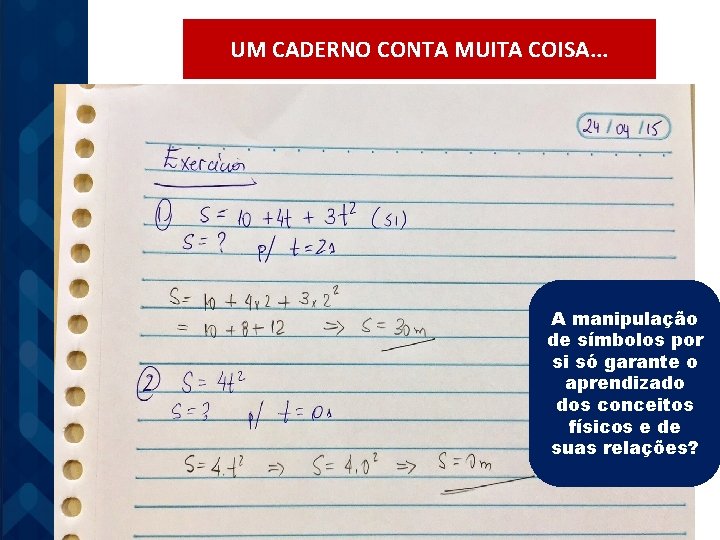 UM CADERNO CONTA MUITA COISA...
24/04/15
Exercícios
1) S = 10 + 4t + 3t² (SI)
S = ? p/ t = 2s
S = 10 + 4x2 + 3x2²
= 10 + 8 + 12 => S = 30m
2) S = 4t²
S = ? p/ t = 0s
S = 4.t² => S = 4.0² => S = 0m
A manipulação
de símbolos por
si só garante o
aprendizado
dos conceitos
físicos e de
suas relações?